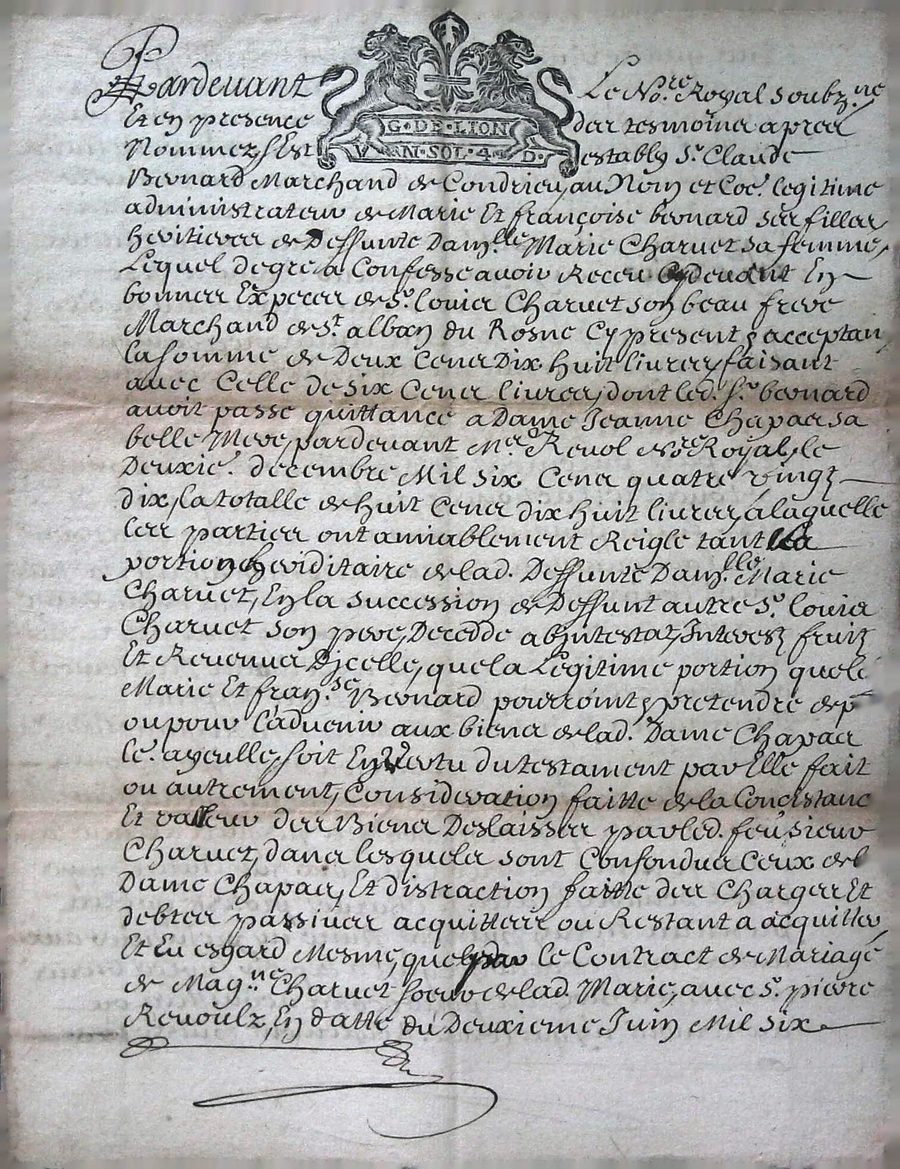 Pardevant Le No.re Royal soubz.ne
Et en presence des tesmoins apres
G·DE·LION
V N·SOL·4·D·
Nommez s'Est estably S.r Claude
Beonard Marchand de Condrieu, au Nom et Coe. legitime
administrateur de Marie Et françoise beonard ses filles
heritieres de Deffunte Dam.lle Marie Charvet sa femme,
Lequel de gre a Confesse avoir Receu Cydevant En
bonnes Especes de S.r louis Charvet son beau frere
Marchand de S.t alban du Rosne Cy present & acceptan
la somme de Deux Cens Dix huit livres, faisant
avec Celle de six Cens livres, dont led. S.r beonard
avoit passé quittance a Dame Jeanne Chapas sa
belle Mere, pardevant M.e Revol No.re Royal, le
Deuxie. decembre Mil six Cens quatre vingt
dix, la totalle de huit Cens dix huit livres, a laquelle
les parties ont amiablement Reigle tant la
portion hereditaire de lad. Deffunte Dam.lle Marie
Charvet, En la succession de Deffunt autre S.r louis
Charvet son pere, Decedde abintestat, Interest fruitz
Et Revenus D'jcelle, que la Legitime portion que lē
Marie Et fran.se Beonard pourroint pretendre de p̄
ou pour l'advenir aux biens de lad. Dame Chapas
le. ayeulle, soit En Vertu du testament par Elle fait
ou autrement, Consideration faitte de la Concistanc
Et valleur des Biens Deslaisses par led. feu sieur
Charvet, dans lesquels sont Confondus Ceux de l
Dame Chapas, Et distraction faitte des Charges Et
debtes passives acquittees ou Restant a acquitter,
Et Eu esgard Mesme, que par le Contract de Mariage
de Mag.ne Charvet soeur de lad. Marie, avec S.r pierre
Revoulz, En datte du Deuxieme Juin Mil six